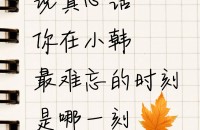 说真心话
你在小韩
最难忘的时刻
是哪一刻